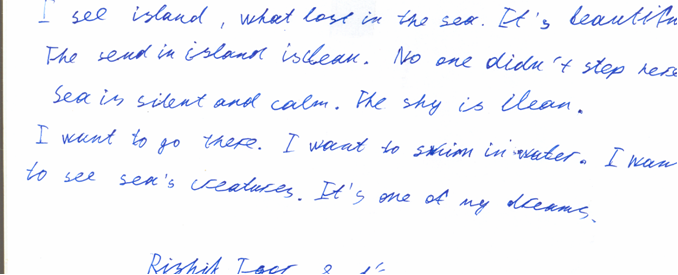 I see island, what lost in the sea. It's beautifu
The send in island is clean. No one didn't step here
Sea is silent and calm. The sky is clean.
I want to go there. I want to swim in water. I wan
to see sea's creatures. It's one of my dreams.
Rishit